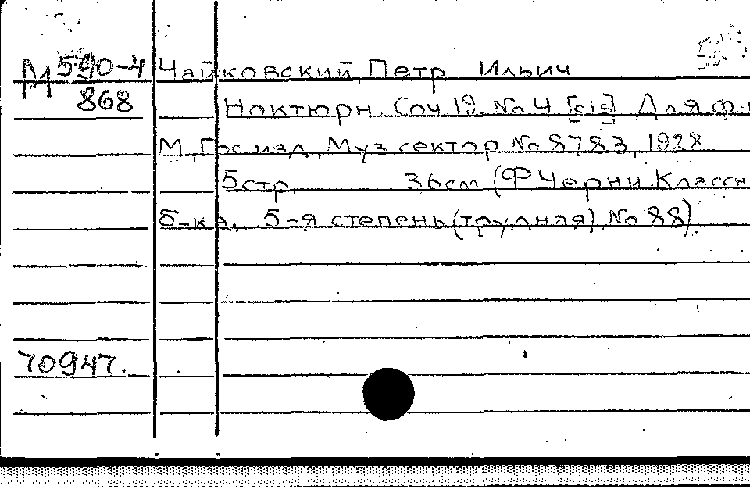 М 590-4 Чайковский Петр Ильич
868 Ноктюрн. Соч 19. No 4 [cis] Для ф-
М., Гос. изд., Муз. сектор No 8783, 1928.
5 стр. 36 см (Ф Черни. Классн
б-ка, 5-я степень (трудная), No 88).
70947.